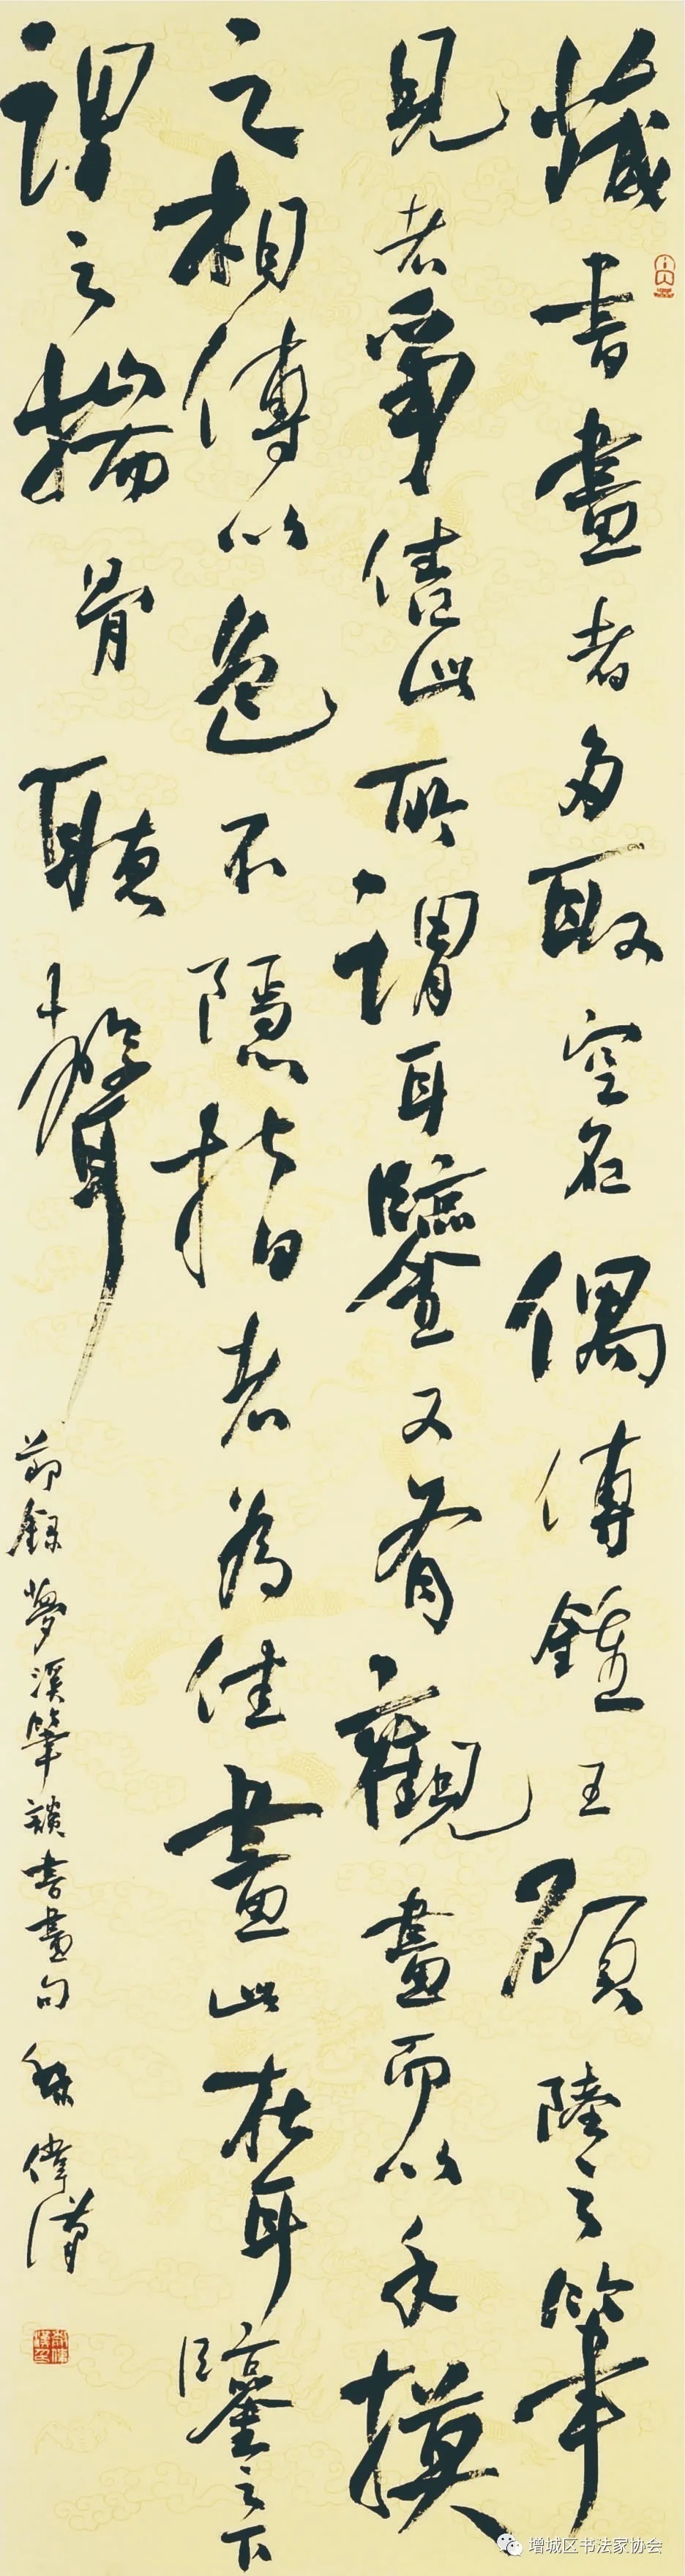 藏書畫者多取空名偶傳鍾王顧陸之筆
見者爭售此所謂耳鑒又有觀畫而以手摸
之相傳以色不隱指者為佳畫此在耳鑒之下
謂之揣骨聽聲
節錄夢溪筆談書畫句 偉漢
增城区书法家协会